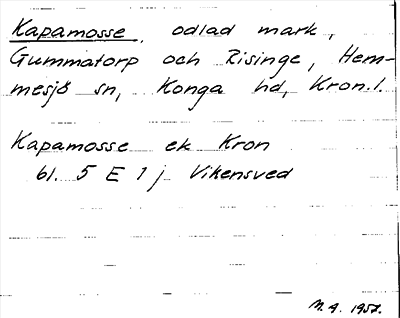 Kapamosse, odlad mark,
Gummatorp och Risinge, Hem-
mesjö sn, Konga hd, Kron. l.
Kapamosse ek Kron
bl. 5 E 1 j Vikensved
M. A. 1957.